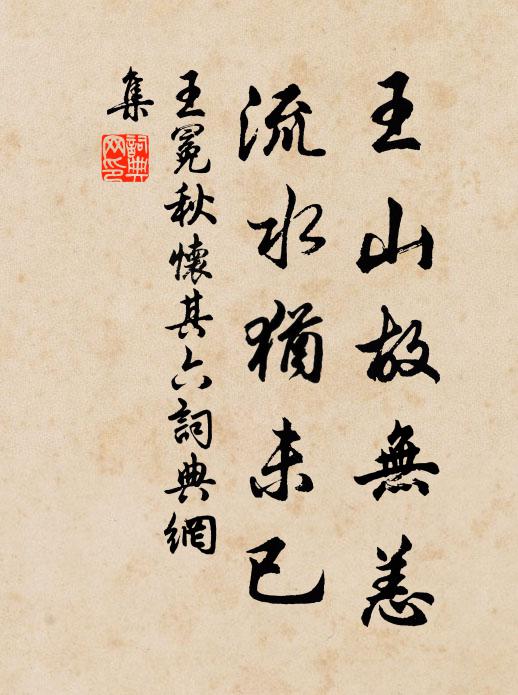 王山故無恙
流水猶未已
王冕秋懷其六詞典網
集
詞典
网印